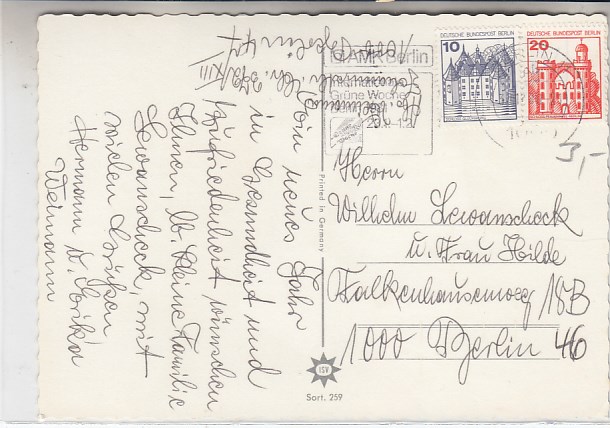 Ein neues Jahr
in Gesundheit und
Zufriedenheit wünschen
Ihnen, lb. kleine Familie
Lewanscheck, mit
vielen Grüßen
Hermann u. Erika
Weimann
1000 Berlin 47
AMK Berlin
Grüne Woche
10 DEUTSCHE BUNDESPOST BERLIN
20 DEUTSCHE BUNDESPOST BERLIN
3,-
Printed in Germany
Herrn
Wilhelm Lewanscheck
u. Frau Hilde
Falkenhausenweg 18B
1000 Berlin 46
ISV
Sort. 259